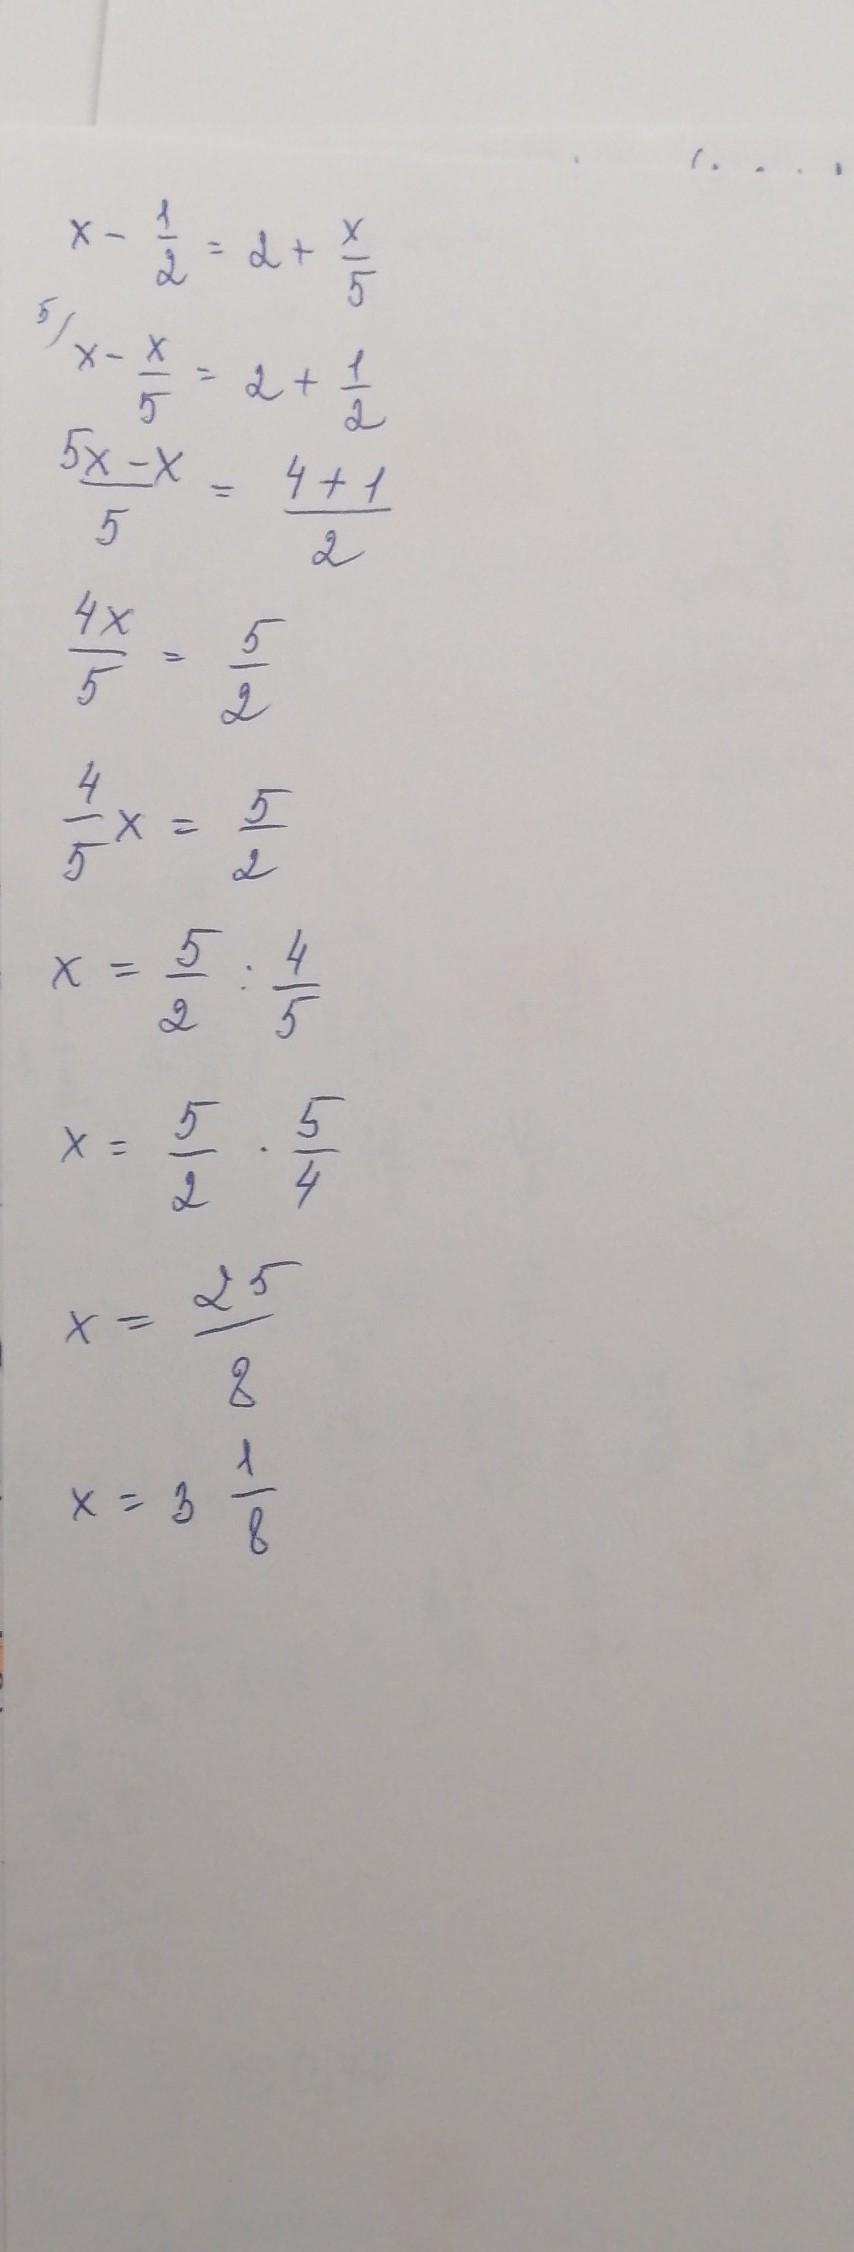 x - 1/2 = 2 + x/5
5/ x - x/5 = 2 + 1/2
5x - x/5 = 4 + 1/2
4x/5 = 5/2
4/5 x = 5/2
x = 5/2 : 4/5
x = 5/2 · 5/4
x = 25/8
x = 3 1/8